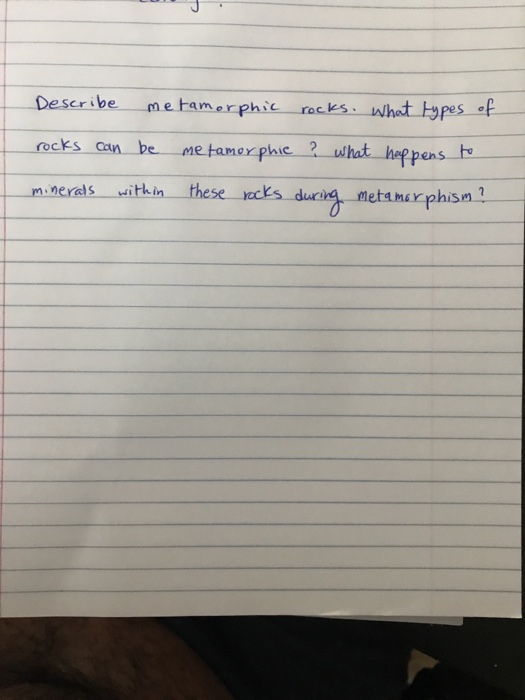 Describe metamorphic rocks. What types of
rocks can be metamorphic? What happens to
minerals within these rocks during metamorphism?